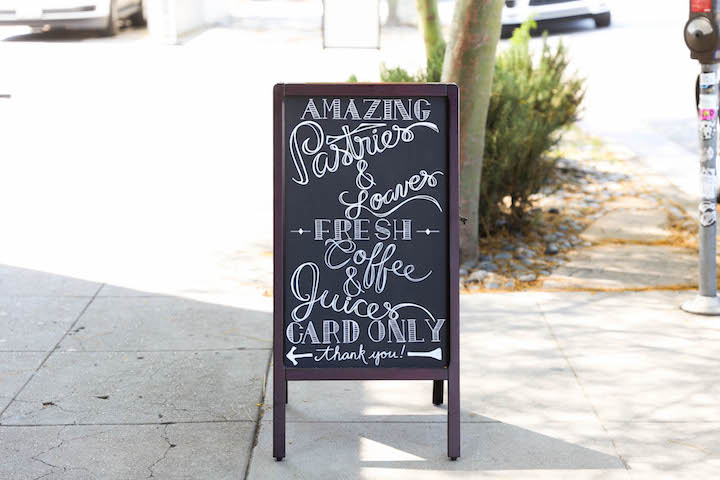 AMAZING
Pastries
&
Loaves
FRESH
Coffee
&
Juices
CARD ONLY
thank you!